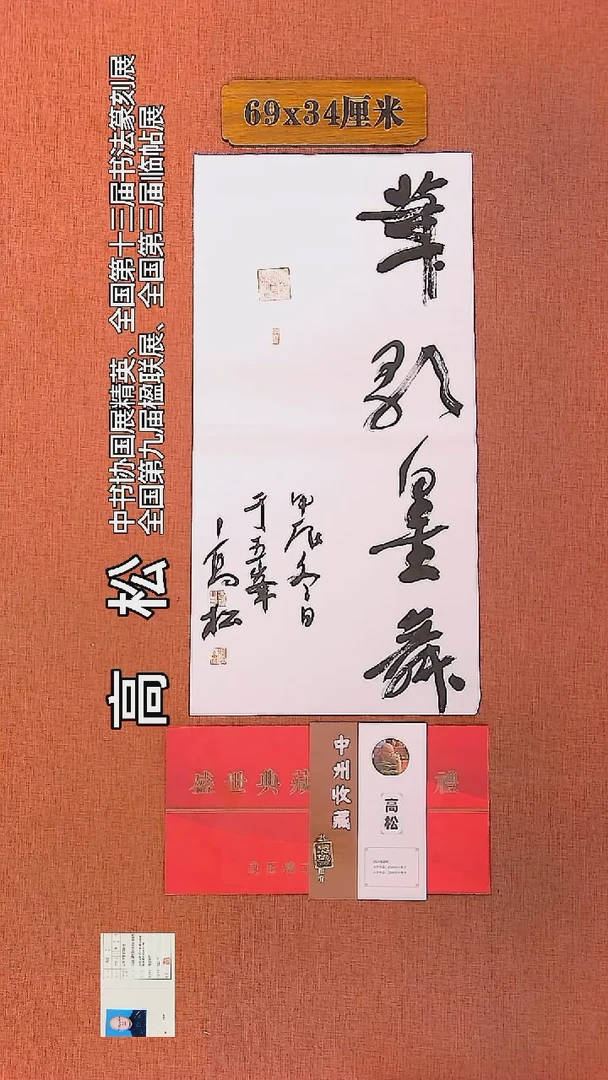 69x34厘米
筆歌墨舞
甲辰冬日
于五峯
高松
高松
中书协国展精英、全国第十三届书法篆刻展
全国第九届楹联展、全国第三届临帖展
盛世典藏
禮
中州收藏
高松